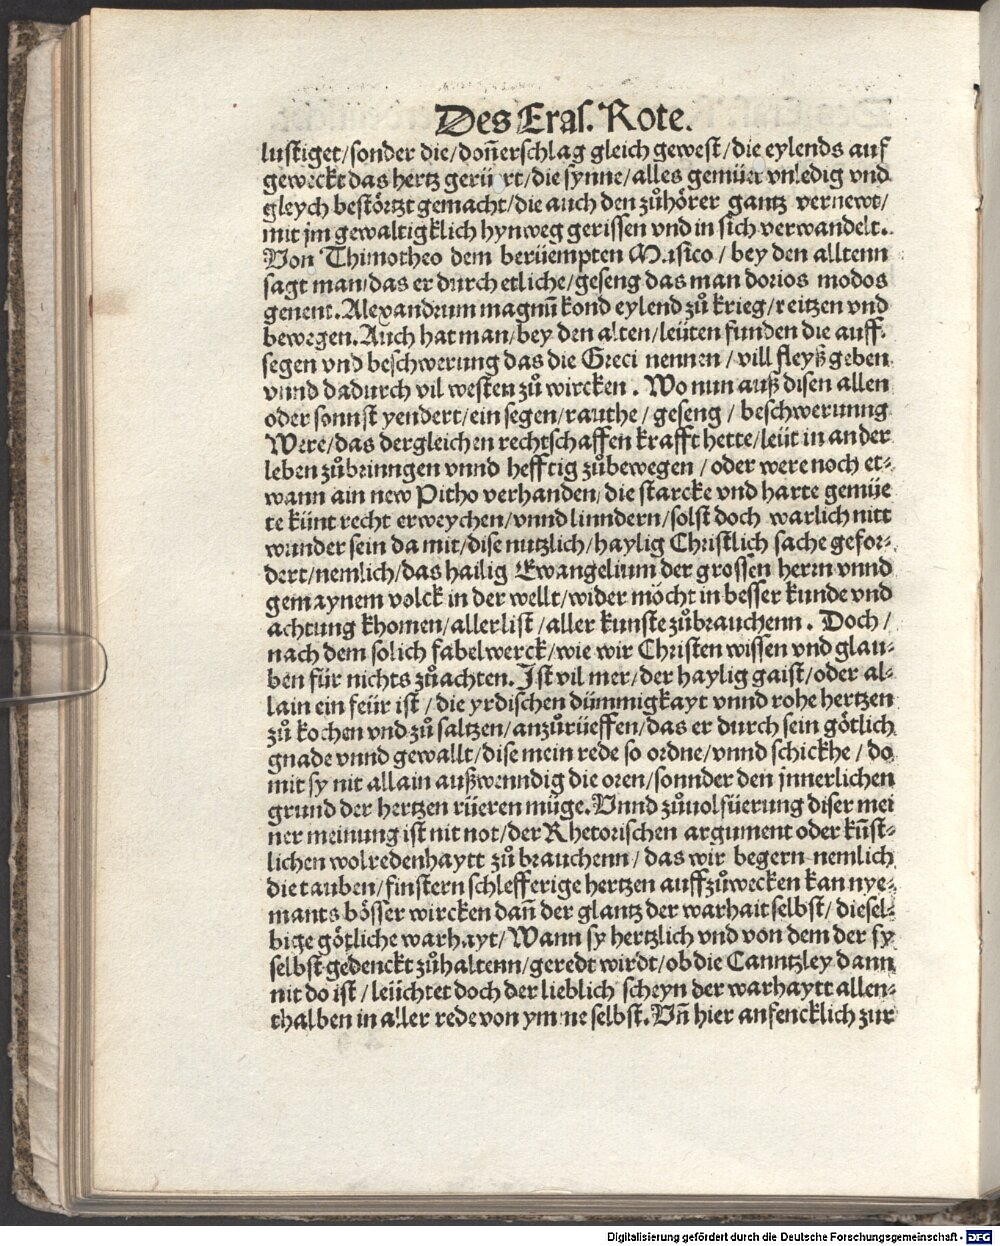 Des Eras. Rote.
lustiget/sonder die/doñerschlag gleich gewest/die eylends auf
geweckt das hertz gerüert/die synne/alles gemüet vnledig vnd
gleych bestörtzt gemacht/die auch den zůhörer gantz vernewt/
mit jm gewaltigklich hynweg gerissen vnd in sich verwandelt.
Von Thimotheo dem berüempten Musico/bey den alltenn
sagt man/das er durch etliche/geseng das man dorios modos
genent. Alexandrum magnũ kond eylend zů krieg/reitzen vnd
bewegen. Auch hat man/bey den alten/leüten funden die auff-
segen vnd beschwerung das die Greci nennen/vill fleyß geben
vnnd dadurch vil westen zů wircken. Wo nun auß disen allen
oder sonnst yendert/ein segen/rauthe/geseng/beschwerunng
Were/das dergleichen rechtschaffen krafft hette/leüt in ander
leben zůbrinngen vnnd hefftig zůbewegen/oder were noch et-
wann ain new Pitho verhanden/die starcke vnd harte gemüe
te künt recht erweychen/vnnd linndern/solst doch warlich nitt
wunder sein da mit/dise nutzlich/haylig Christlich sache gefor-
dert/nemlich/das hailig Ewangelium der grossen herrn vnnd
gemaynem volck in der wellt/wider möcht in besser kunde vnd
achtung khomen/allerlist/aller kunste zůbrauchenn. Doch/
nach dem solich fabelwerck/wie wir Christen wissen vnd glau-
ben für nichts zůachten. Ist vil mer/der haylig gaist/oder al-
lain ein feür ist/die yrdischen dümmigkayt vnnd rohe hertzen
zů kochen vnd zů saltzen/anzůrüeffen/das er durch sein götlich
gnade vnnd gewallt/dise mein rede so ordne/vnnd schickhe/do
mit sy nit allain außwenndig die oren/sonnder den jnnerlichen
grund der hertzen rüeren müge. Vnnd zůuolfüerung diser mei
ner meinung ist nit not/der Rhetorischen argument oder kũst-
lichen wolredenhaytt zů brauchenn/das wir begern nemlich
die tauben/finstern schlefferige hertzen auffzůwecken kan nye-
mants bösser wircken dañ der glantz der warhait selbst/diesel-
bige götliche warhayt/Wann sy hertzlich vnd von dem der sy
selbst gedenckt zůhaltenn/geredt wirdt/ob die Canntzley dann
nit do ist/leüchtet doch der lieblich scheyn der warhaytt allen-
thalben in aller rede von ym ne selbst. Vñ hier anfencklich zur
Digitalisierung gefördert durch die Deutsche Forschungsgemeinschaft - DFG